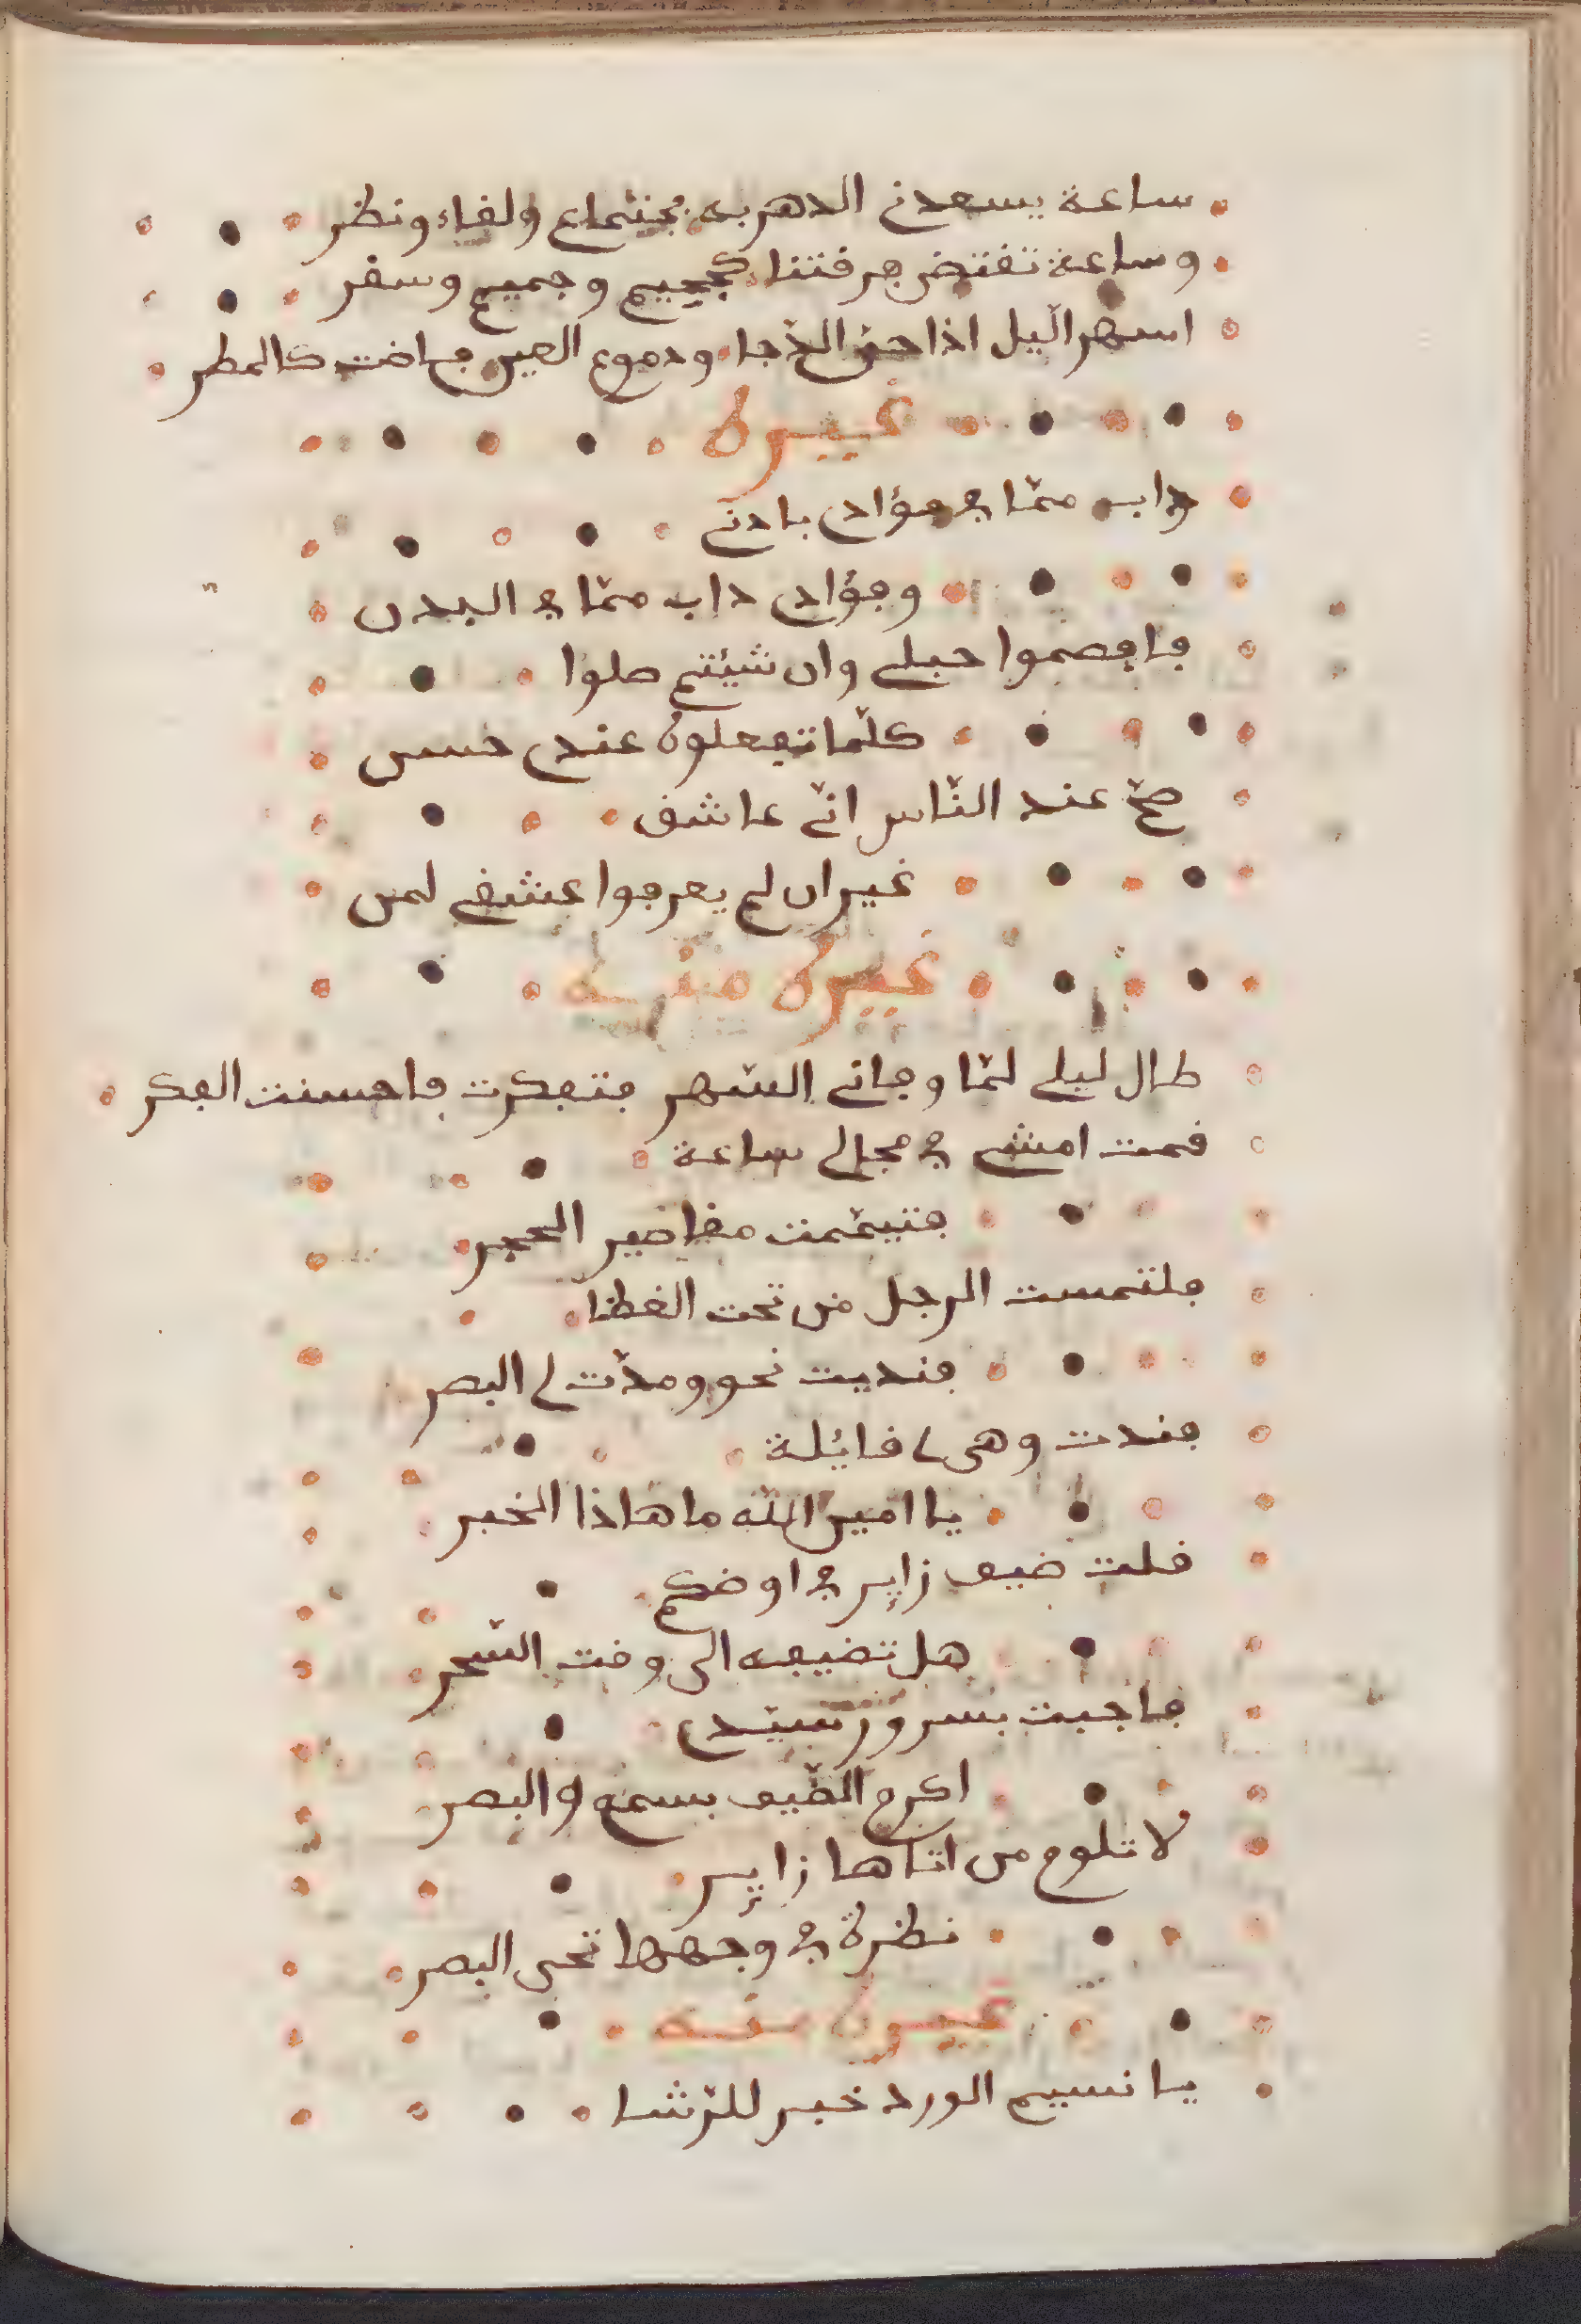 ساعة يسعدني الدهر به بجتماع ولفاء ونظر
وساعة تفتضي فرفتنا كجحيم وجميم وسفر
اسهر اليل اذا جن الدجا ودموع العين فاضت كالمطر
غيره
داب ممّا في فؤادي بادني
وفؤادي داب ممّا في البدن
فافصموا حبلي وان شيئتم صلوا
كلّما تفعلوه عندي حسن
صحّ عند النّاس انّي عاشق
غير ان لم يعرفوا عشقي لمن
غيره منه
طال ليلي لمّا وجاني السّهر فتفكرت فاحسنت الفكر
قمت امشي في مجالي ساعة
فتيمّمت مقاصير الحجر
فلتمست الرجل من تحت الغطا
فنديت نحو ومدّت لي البصر
فندت وهي لي قايئلة
يا امين الله ما هاذا الخبر
قلت ضيف زاير في اوضكم
هل تضيفه الى وقت السّحر
فاجبت بسرور سيّدي
اكرم الضّيف بسمع والبصر
لا تلوم من اتاها زاير
نظرة في وجهها تحي البصر
غيره منه
يا نسيم الورد خبر للرّشا